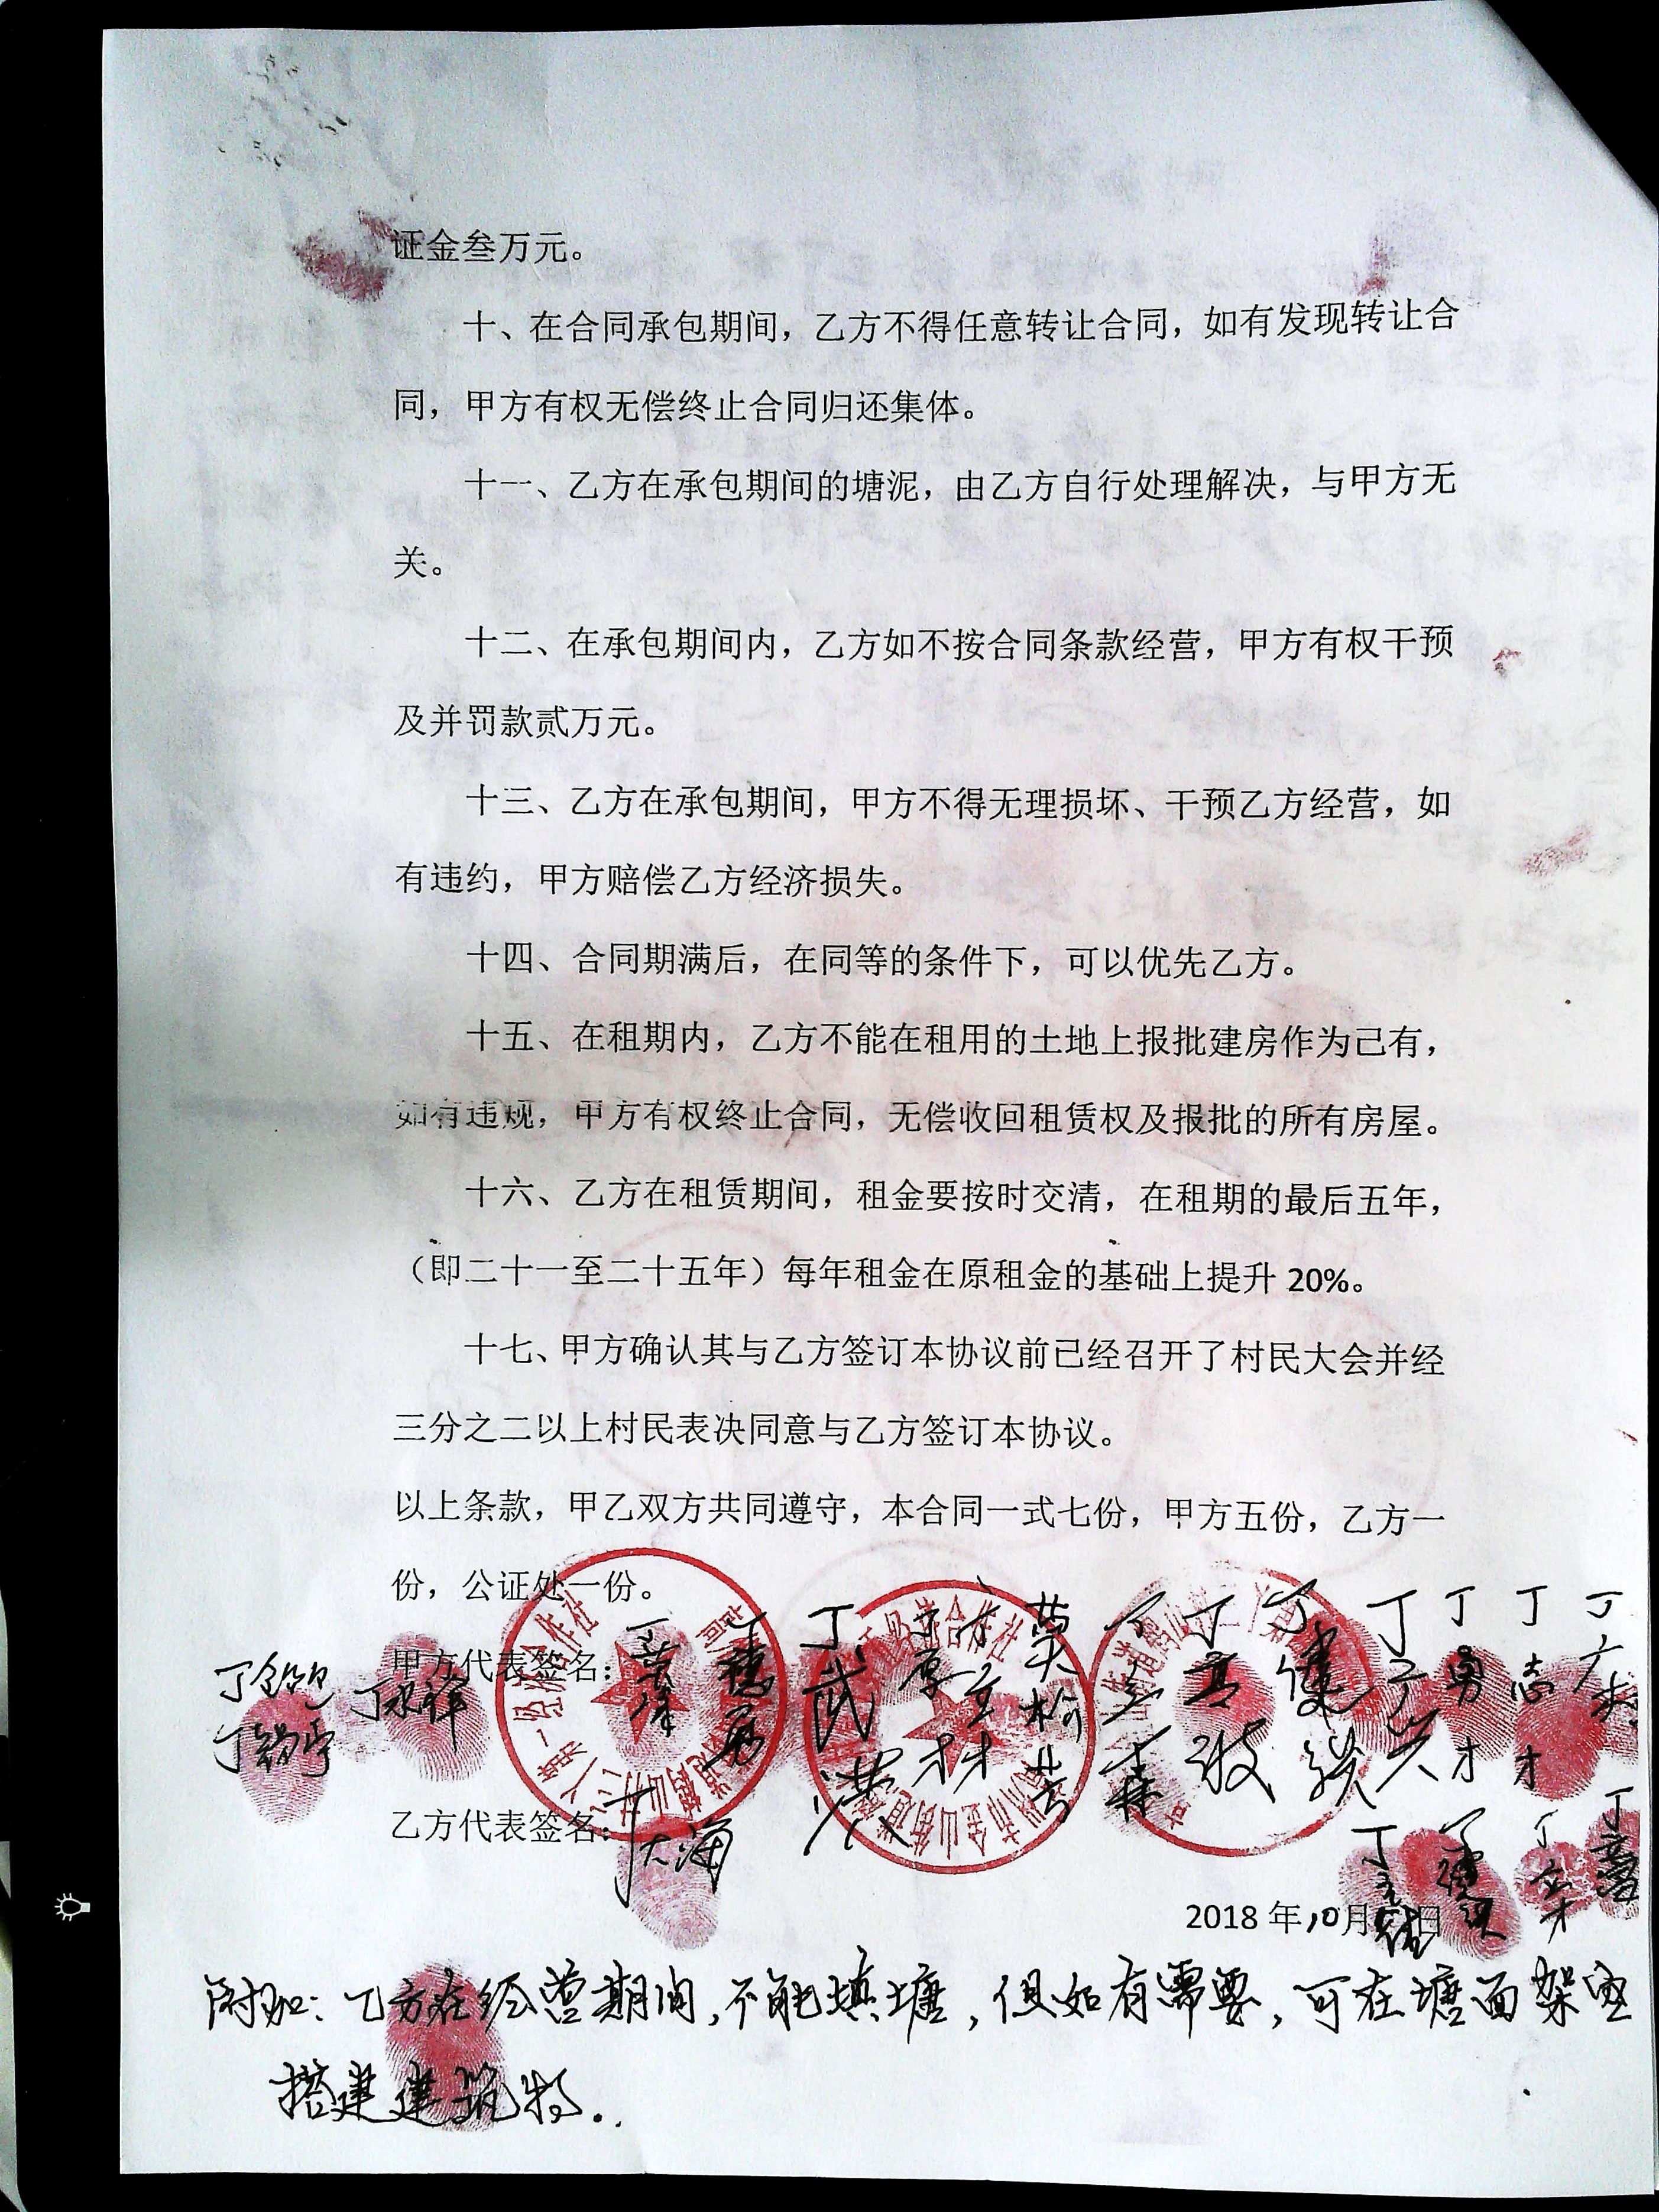 证金叁万元。
十、在合同承包期间，乙方不得任意转让合同，如有发现转让合
同，甲方有权无偿终止合同归还集体。
十一、乙方在承包期间的塘泥，由乙方自行处理解决，与甲方无
关。
十二、在承包期间内，乙方如不按合同条款经营，甲方有权干预
及并罚款贰万元。
十三、乙方在承包期间，甲方不得无理损坏、干预乙方经营，如
有违约，甲方赔偿乙方经济损失。
十四、合同期满后，在同等的条件下，可以优先乙方。
十五、在租期内，乙方不能在租用的土地上报批建房作为己有，
如有违规，甲方有权终止合同，无偿收回租赁权及报批的所有房屋。
十六、乙方在租赁期间，租金要按时交清，在租期的最后五年，
（即二十一至二十五年）每年租金在原租金的基础上提升 20%。
十七、甲方确认其与乙方签订本协议前已经召开了村民大会并经
三分之二以上村民表决同意与乙方签订本协议。
以上条款，甲乙双方共同遵守，本合同一式七份，甲方五份，乙方一
份，公证处一份。
甲方代表签名：
丁武洪
丁志才
丁勇才
乙方代表签名：丁大海
2018 年10月 日
附加：乙方在经营期间，不能填塘，但如有需要，可在塘面架空
搭建建筑物。